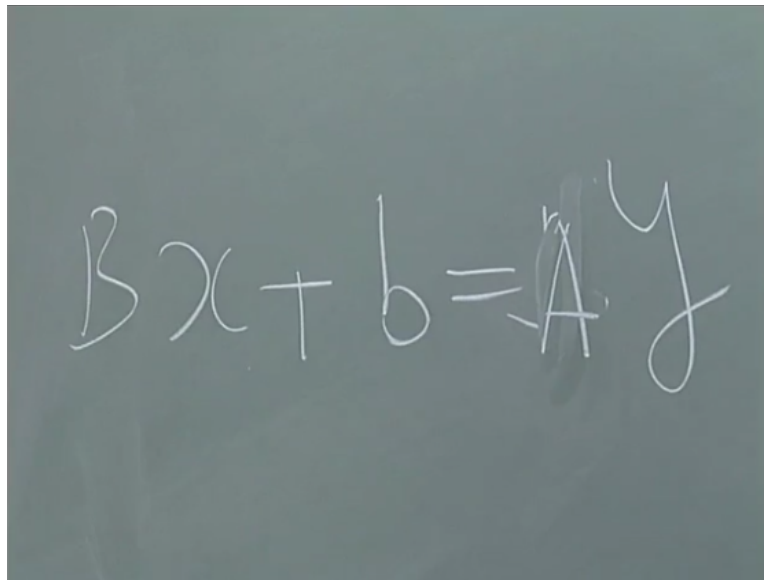 Bx + b = Ay